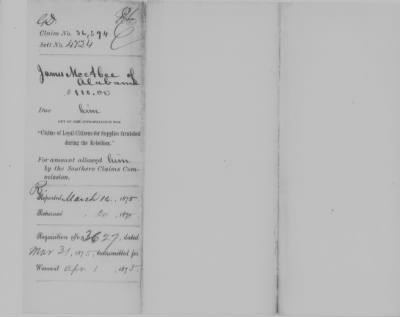 Claim No. 36,594
Sett. No. 4724
James McAbee of
Alabama
$110.00
Due him
OUT OF THE APPROPRIATION FOR
"Claims of Loyal Citizens for Supplies furnished
during the Rebellion."
For amount allowed him
by the Southern Claims Com-
mission.
Reported, March 16, 1875
do 1875
Requisition No. 3627, dated
Mar 31, 1875, transmitted for
Warrant Apr 1, 1875.